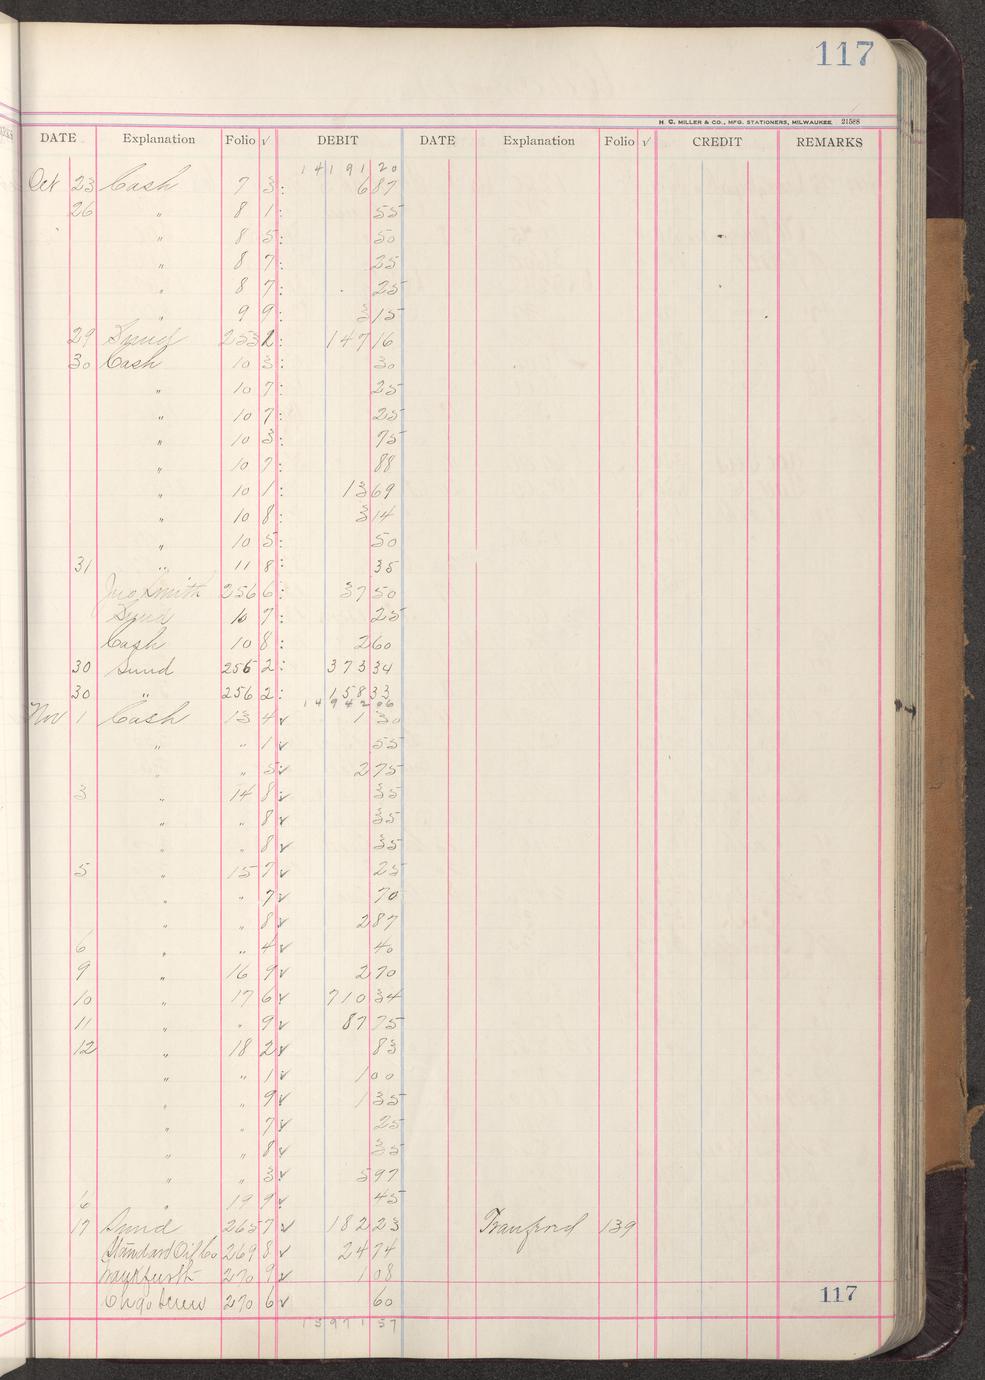 117
H. C. MILLER & CO., MFG. STATIONERS, MILWAUKEE 21588
DATE Explanation Folio √ DEBIT DATE Explanation Folio √ CREDIT REMARKS
14191 20
Oct 23 Cash 7 3: 6 87
26 " 8 1: 55
" 8 5: 50
" 8 7: 25
" 8 7: 25
" 9 9: 3 15
29 Sund 253 2: 147 16
30 Cash 10 3: 30
" 10 7: 25
" 10 7: 25
" 10 3: 75
" 10 7: 88
" 10 1: 13 69
" 10 8: 3 14
" 10 5: 50
31 " 11 8: 35
Jno Smith 256 6: 37 50
Sund 10 7: 25
Cash 10 8: 2 60
30 Sund 256 2: 373 34
30 " 256 2: 158 33
14942 06
Nov 1 Cash 13 4 √ 1 30
" " 1 √ 55
" " 5 √ 2 75
3 " 14 8 √ 35
" " 8 √ 35
" " 8 √ 35
5 " 15 7 √ 25
" " 7 √ 70
" " 8 √ 2 87
6 " " 4 √ 40
9 " 16 9 √ 2 70
10 " 17 6 √ 710 34
11 " " 9 √ 87 75
12 " 18 2 √ 83
" " 1 √ 1 00
" " 9 √ 1 35
" " 7 √ 25
" " 8 √ 35
" " 3 √ 5 97
6 " 19 9 √ 45
17 Sund 265 7 √ 182 23 Transfrd 139
Standard Oil Co 269 8 √ 24 74
Frankfurth 270 9 √ 1 08
Chgo Screw 270 6 √ 60
117
15971 37